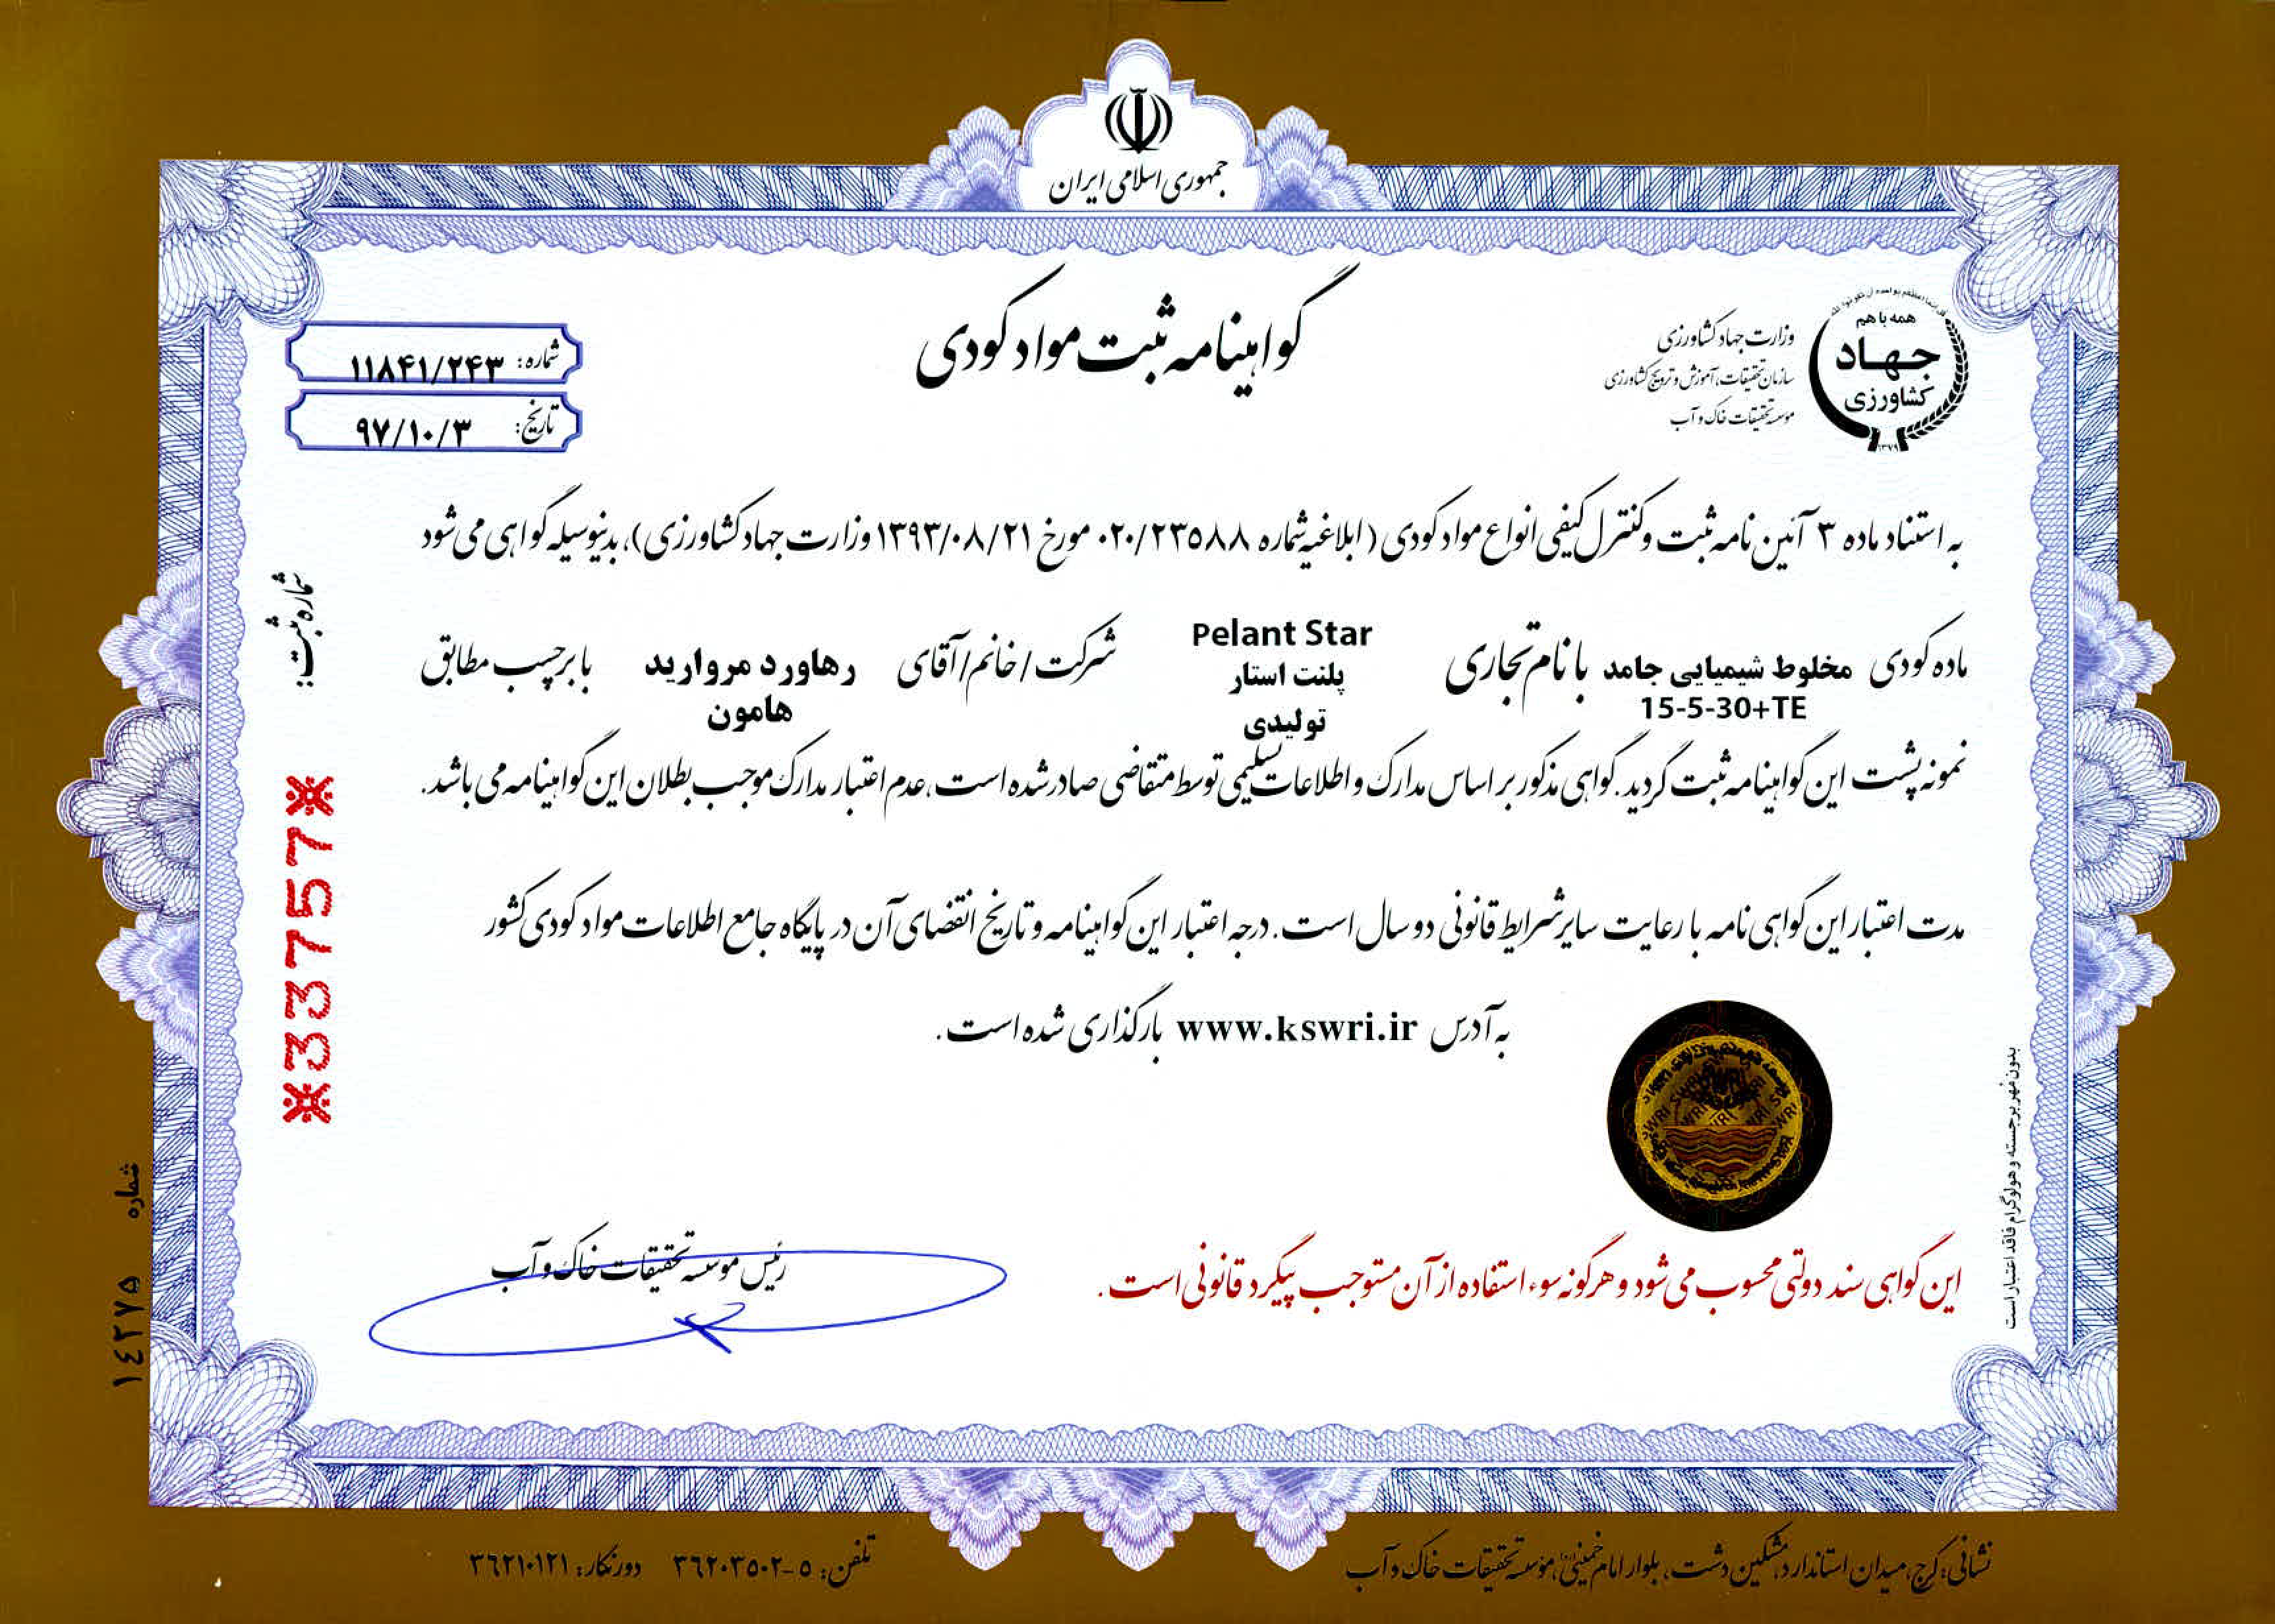 جمهوری اسلامی ایران
گواهینامه ثبت مواد کودی
همه با هم
جهاد
کشاورزی
۱۳۷۹
وزارت جهاد کشاورزی
سازمان تحقیقات، آموزش و ترویج کشاورزی
موسسه تحقیقات خاک و آب
شماره: ۱۱۸۴۱/۲۴۳
تاریخ: ۹۷/۱۰/۳
به استناد ماده ۳ آئین نامه ثبت و کنترل کیفی انواع مواد کودی (ابلاغیه شماره ۰۲۰/۲۳۵۸۸ مورخ ۱۳۹۳/۰۸/۲۱ وزارت جهاد کشاورزی)، بدینوسیله گواهی می شود
ماده کودی مخلوط شیمیایی جامد 15-5-30+TE با نام تجاری Pelant Star پلنت استار تولیدی شرکت / خانم / آقای رهاورد مروارید هامون با برچسب مطابق
نمونه پشت این گواهینامه ثبت گردید. گواهی مذکور بر اساس مدارک و اطلاعات تسلیمی توسط متقاضی صادر شده است، عدم اعتبار مدارک موجب بطلان این گواهینامه می باشد.
مدت اعتبار این گواهی نامه با رعایت سایر شرایط قانونی دو سال است. درجه اعتبار این گواهینامه و تاریخ انقضای آن در پایگاه جامع اطلاعات مواد کودی کشور
به آدرس www.kswri.ir بارگذاری شده است.
شماره ثبت:
※33757※
رئیس موسسه تحقیقات خاک و آب
این گواهی سند دولتی محسوب می شود و هرگونه سوء استفاده از آن مستوجب پیگرد قانونی است.
بدون مهر برجسته و هولوگرام فاقد اعتبار است
شماره ۱٤۲۷۵
نشانی: کرج، میدان استاندارد، مشکین دشت، بلوار امام خمینی، مؤسسه تحقیقات خاک و آب
تلفن: ۵-۳۶۲۰۳۵۰۲ دورنگار: ۳۶۲۱۰۱۲۱